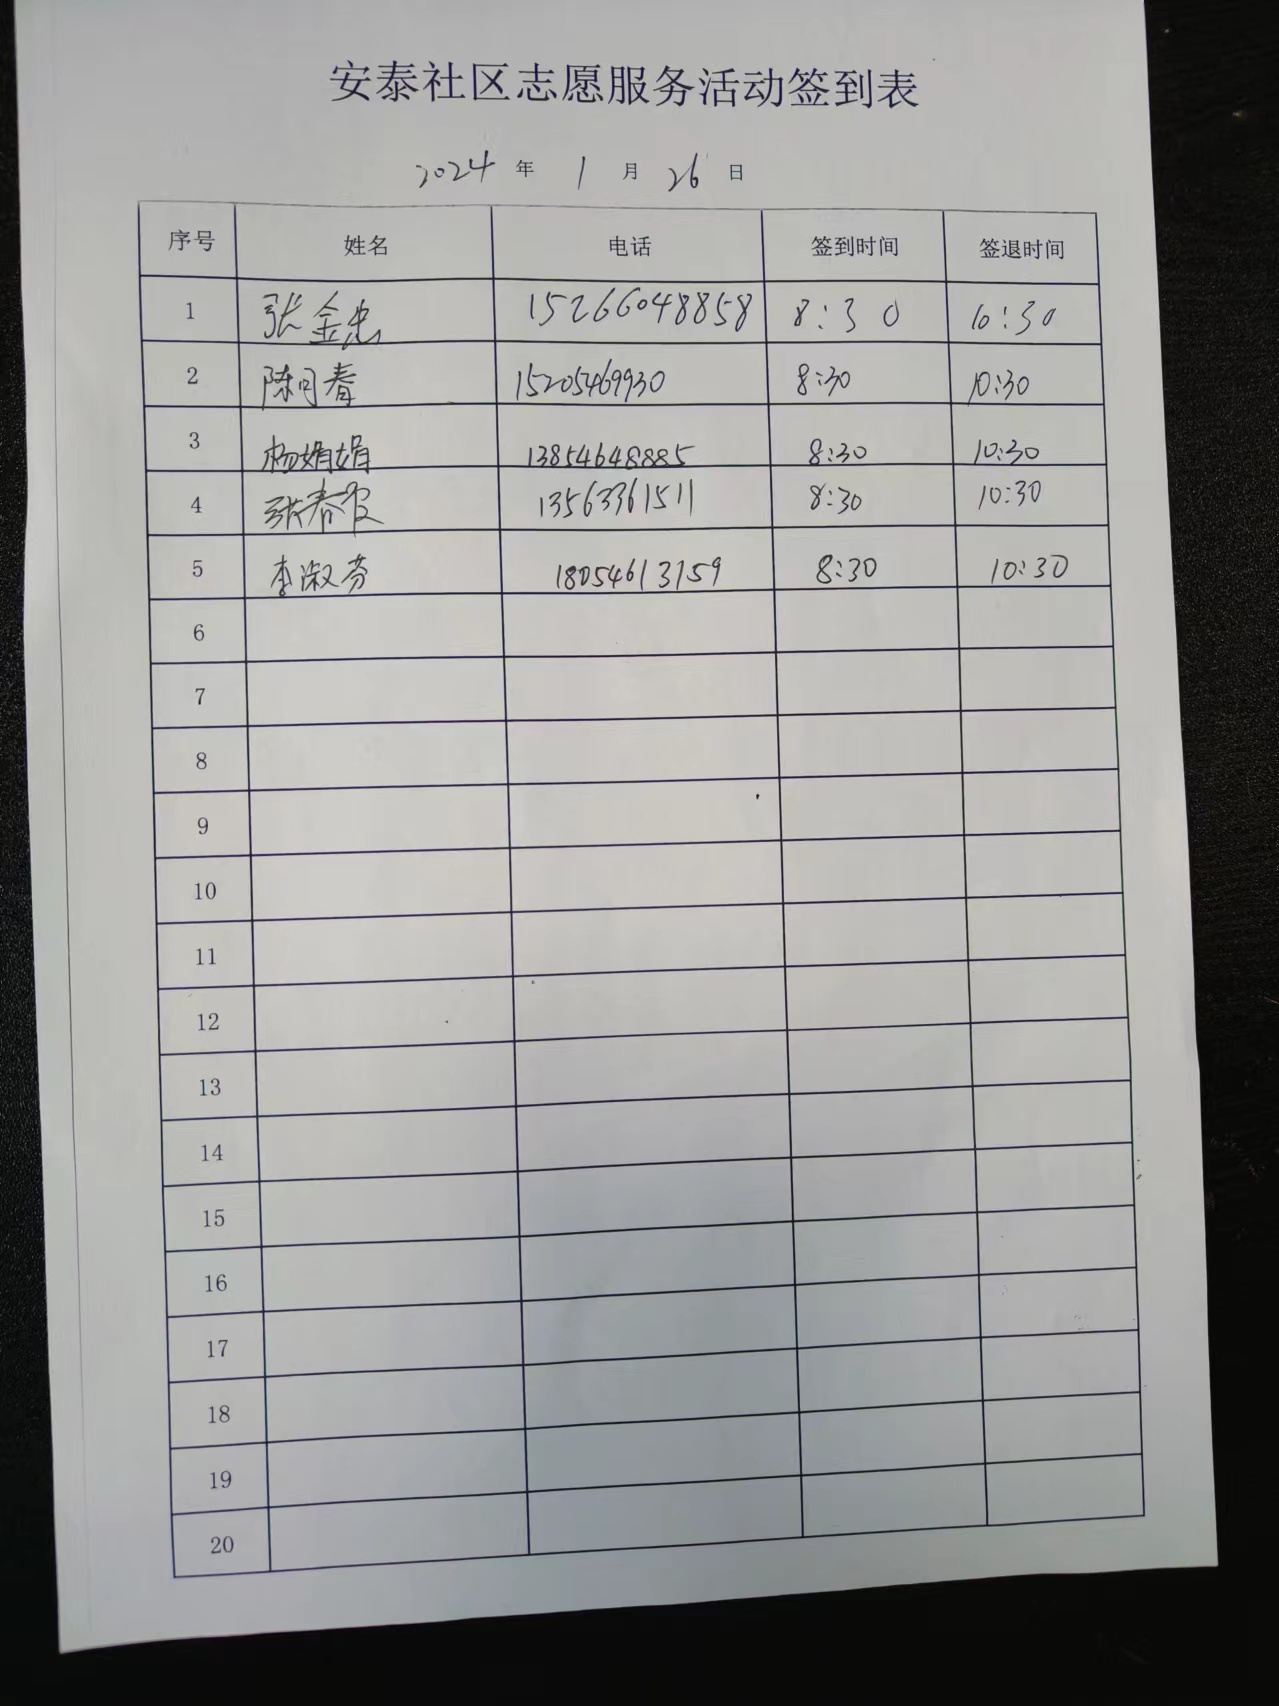 安泰社区志愿服务活动签到表
2024 年 1 月 26 日
序号 姓名 电话 签到时间 签退时间
1 张金忠 15266048858 8:30 10:30
2 陈月春 15205469930 8:30 10:30
3 杨娟娟 13854648885 8:30 10:30
4 张春 13563361511 8:30 10:30
5 李淑芬 18054613159 8:30 10:30
6
7
8
9
10
11
12
13
14
15
16
17
18
19
20